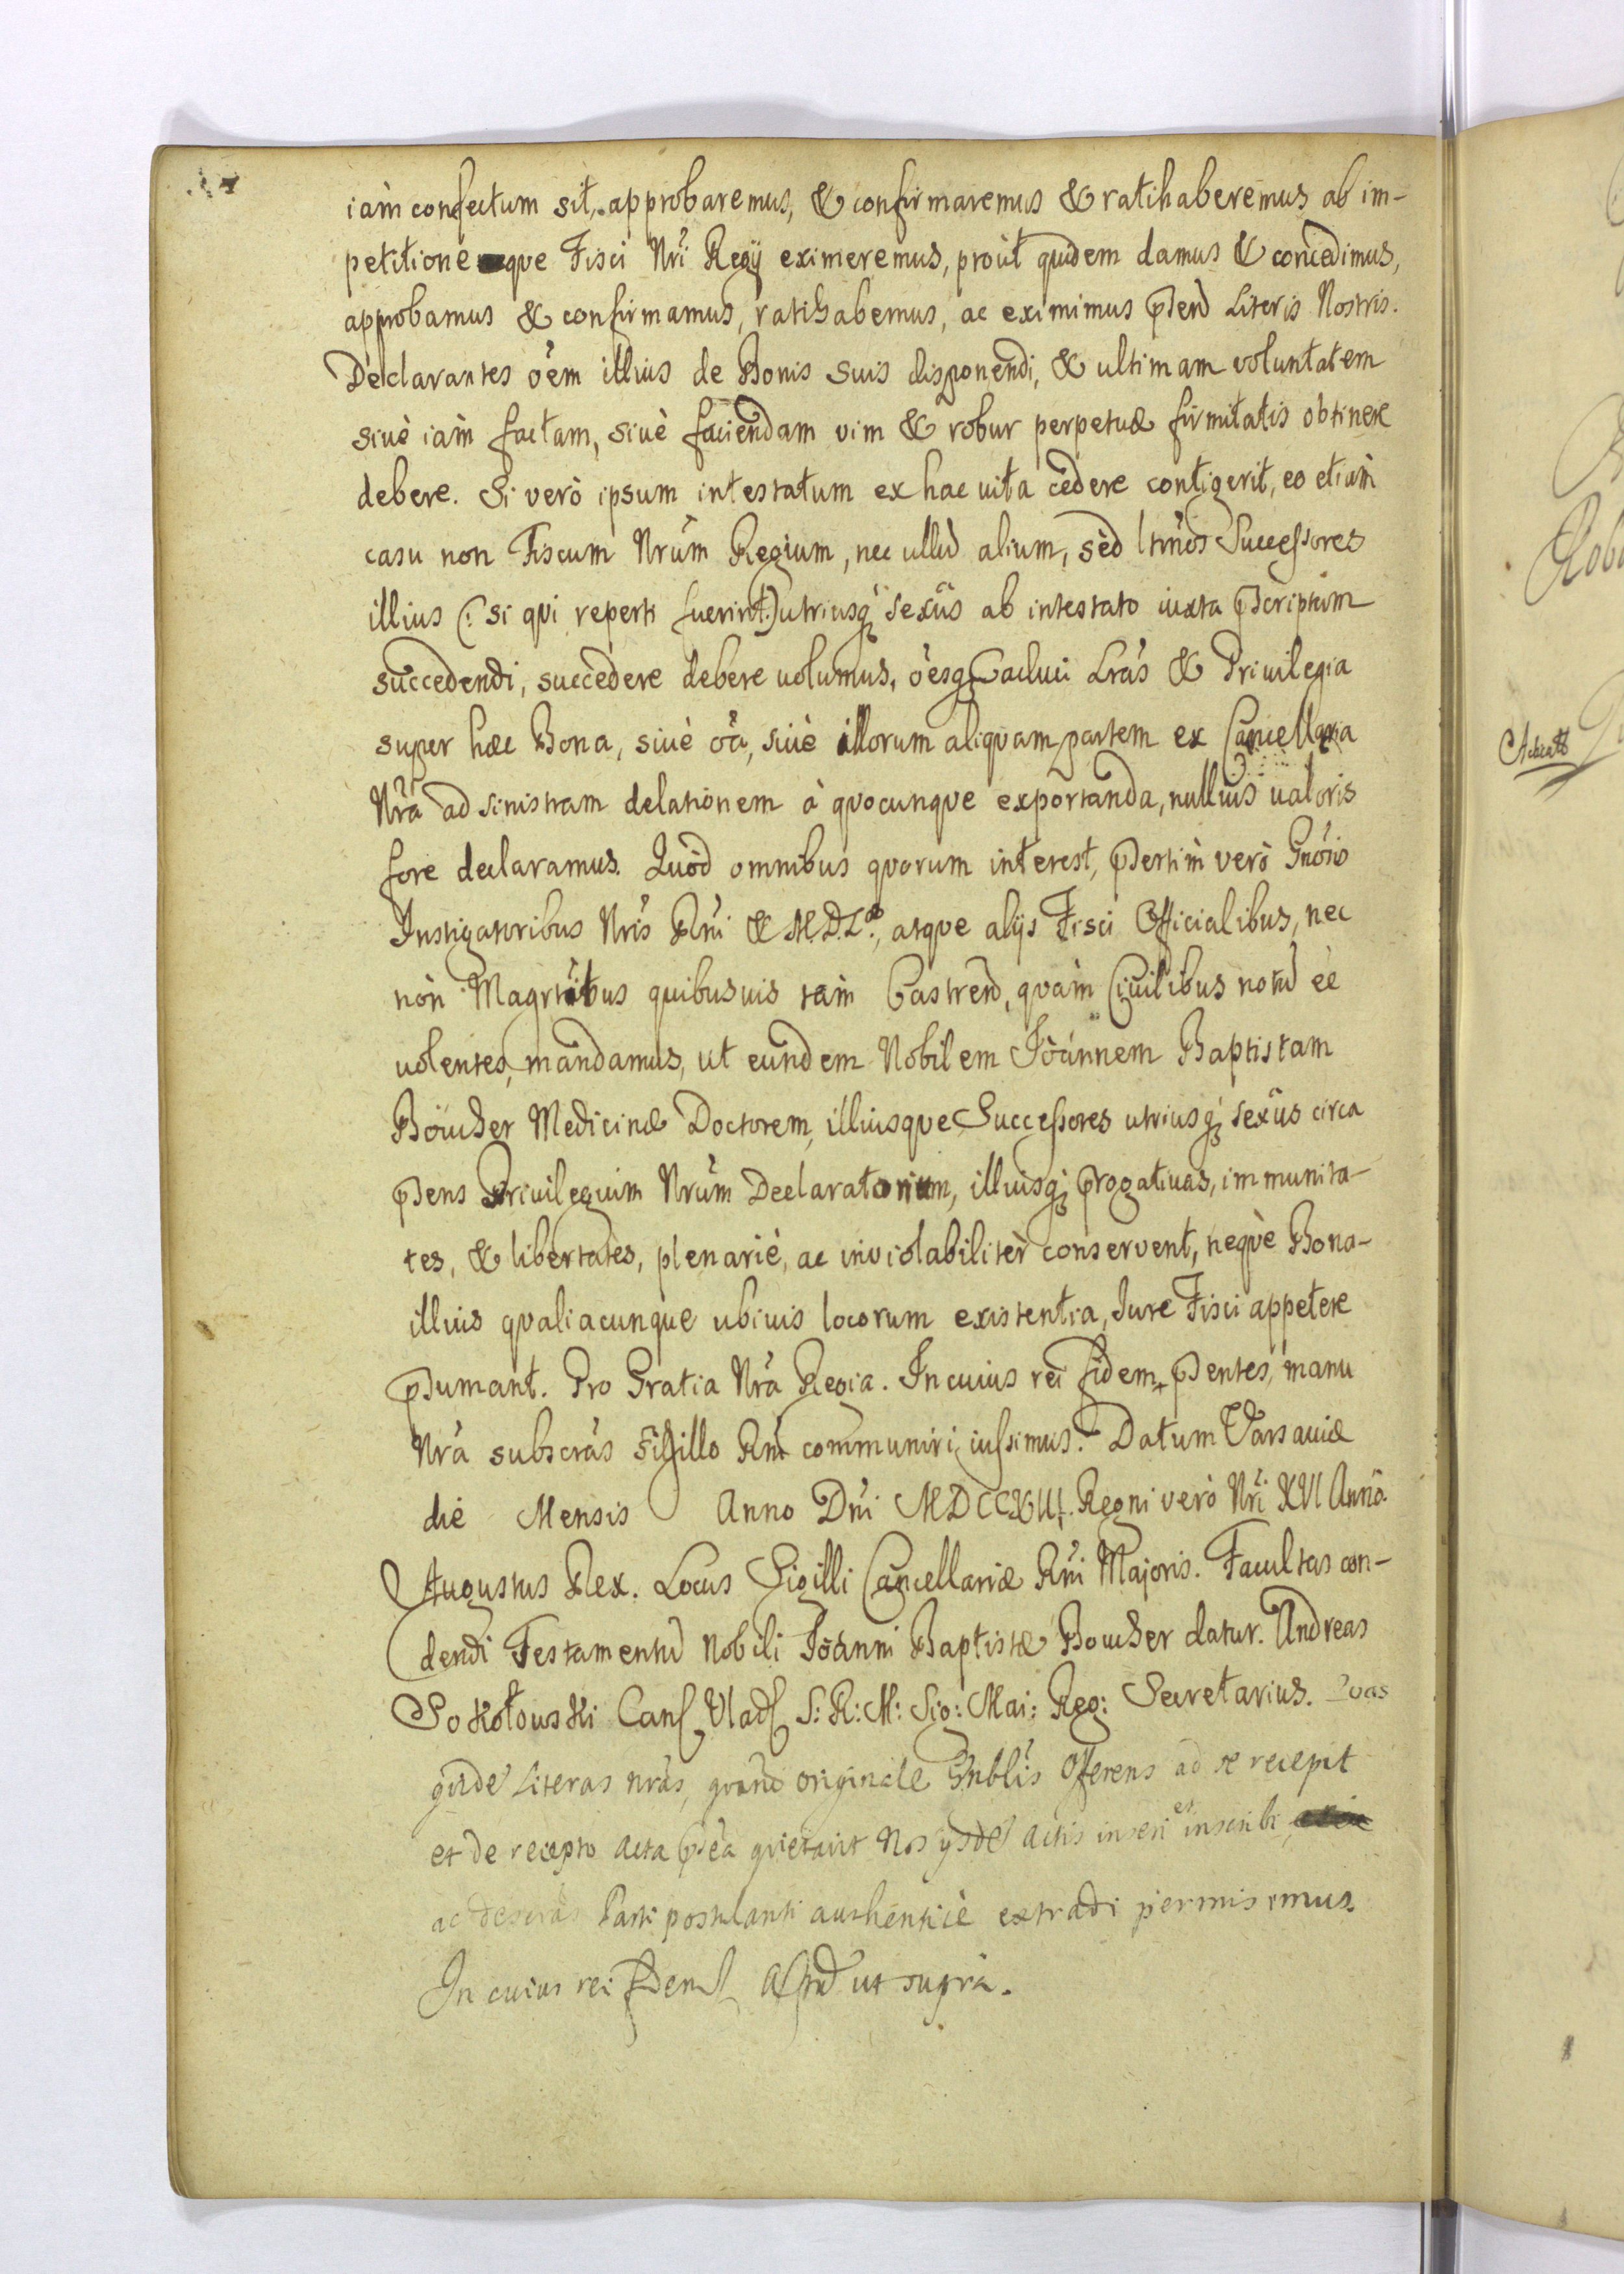 iàm confectum sit, approbaremus, & confirmaremus & ratihaberemus ab im-
petitione que Fisci Nri Regij eximeremus, proùt quidem damus & concedimus,
approbamus & confirmamus, ratihabemus, ac eximimus Literis Nostris.
Declarantes oem illius de Bonis suis disponendi, & ultimam voluntatem
siuè iàm factam, siuè faciendam vim & robur perpetuæ firmitatis obtinere
debere. Si verò ipsum intestatum ex hac uita cedere contigerit, eo etiàm
casu non Fiscum Nrum Regium, nec ullũ alium, sèd ltimos Successores
illius (: si qui reperti fuerint:) utriusq; sexûs ab intestato iuxta pscriptum
succedendi, succedere debere uolumus, oesq; Lras & Priuilegia
super hæc Bona, siuè oa, siuè illorum aliquam partem ex Cancellaria
Nra ad sinistram delationem à quocunque exportanda, nullius ualoris
fore declaramus. Quòd omnibus quorum interest, psertim verò Gnosis
Instigatoribus Nris Rni & M.D.L., atque alijs Fisci Officialibus, nec
nòn Magrtibus quibusuis tàm Castreñ, quàm Ciuilibus notũ ee
uolentes, mandamus, ut eundem Nobilem Joannem Baptistam
Boucher Medicinæ Doctorem, illiusque Successores utriusq; sexûs circa
psens Priuilegium Nrum Declaratorium, illiusq; progatiuas, immunita-
tes, & libertates, plenariè, ac inviolabilitèr conservent, nequè Bona-
illius qualiacunque ubiuis locorum existentia, Jure Fisci appetere
psumant. Pro Gratia Nra Regia. In cuius rei fidem psentes, manu
Nra subscras Sigillo Rni communiri iussimus. Datum Varsauiæ
die Mensis Anno Dni Regni verò Nri XVI Anno.
Augustus Rex. Locus Sigilli Cancellariæ Rni Majoris. Facultas con-
dendi Testamentũ Nobili Joanni Baptistæ Boucher datur. Andreas
Sokołowski S: R: M: Sig: Mai: Reg: Secretarius. Quas
Literas nras, originale Offerens ad se recepit
et de recepto acta psea quietauit Nos actis inseri et inscribi
ac Parti postulanti authenticè extradi permisimus.
In cuius rei ut suprà.
Acticatt